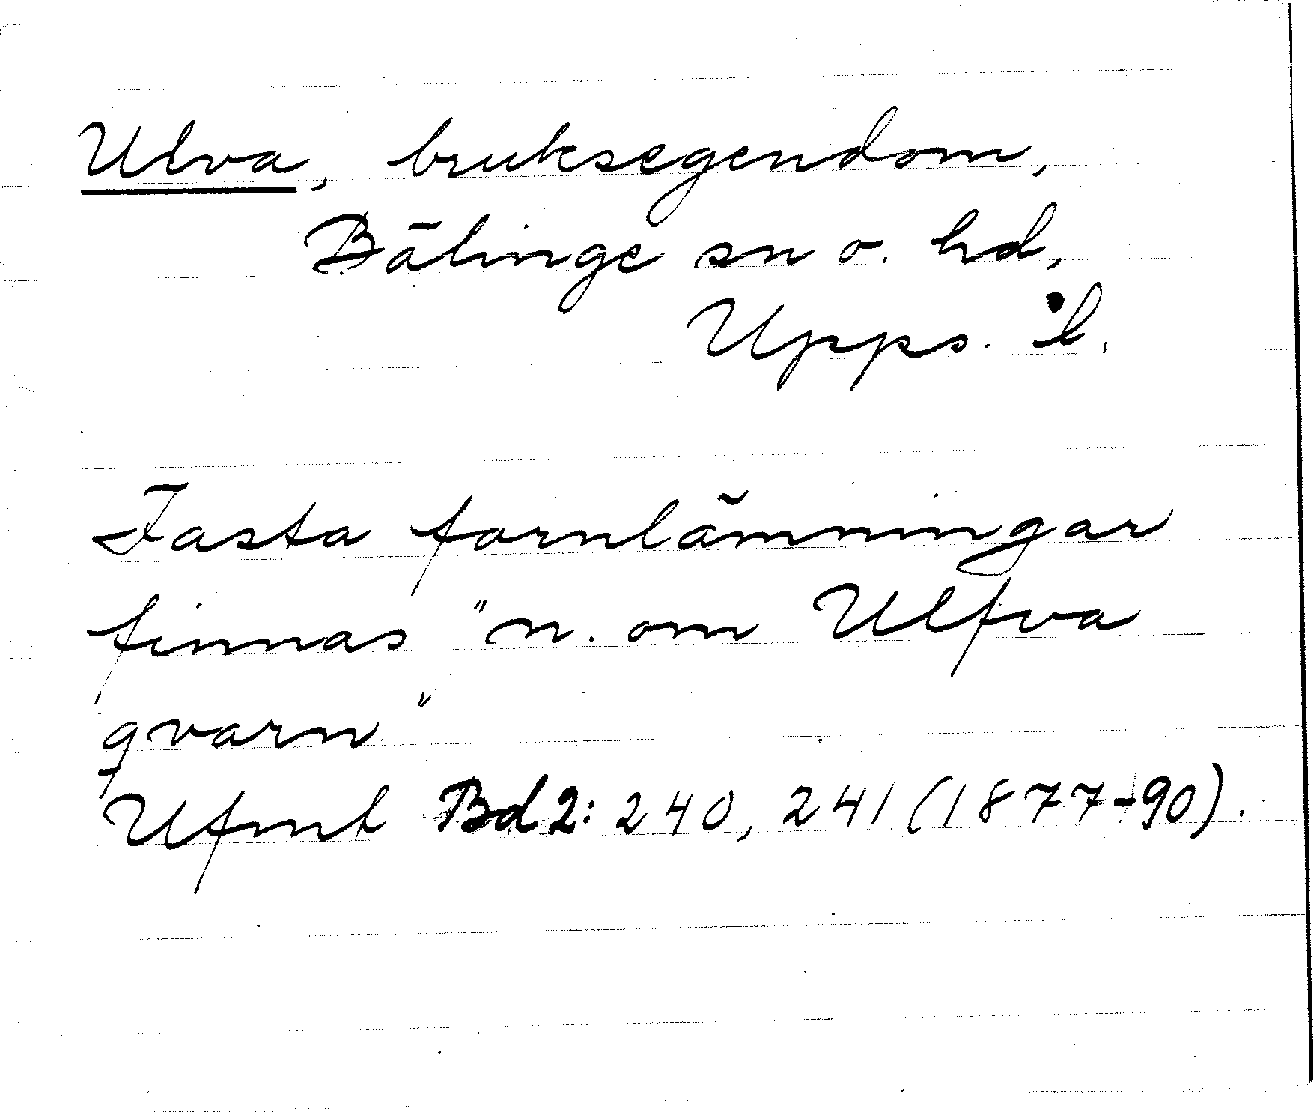 Ulva, bruksegendom,
Bälinge sn o. hd,
Upps. l.
Fasta fornlämningar
finnas "n. om Ulfva
qvarn"
Ufmt Bd 2: 240, 241 (1877-90).